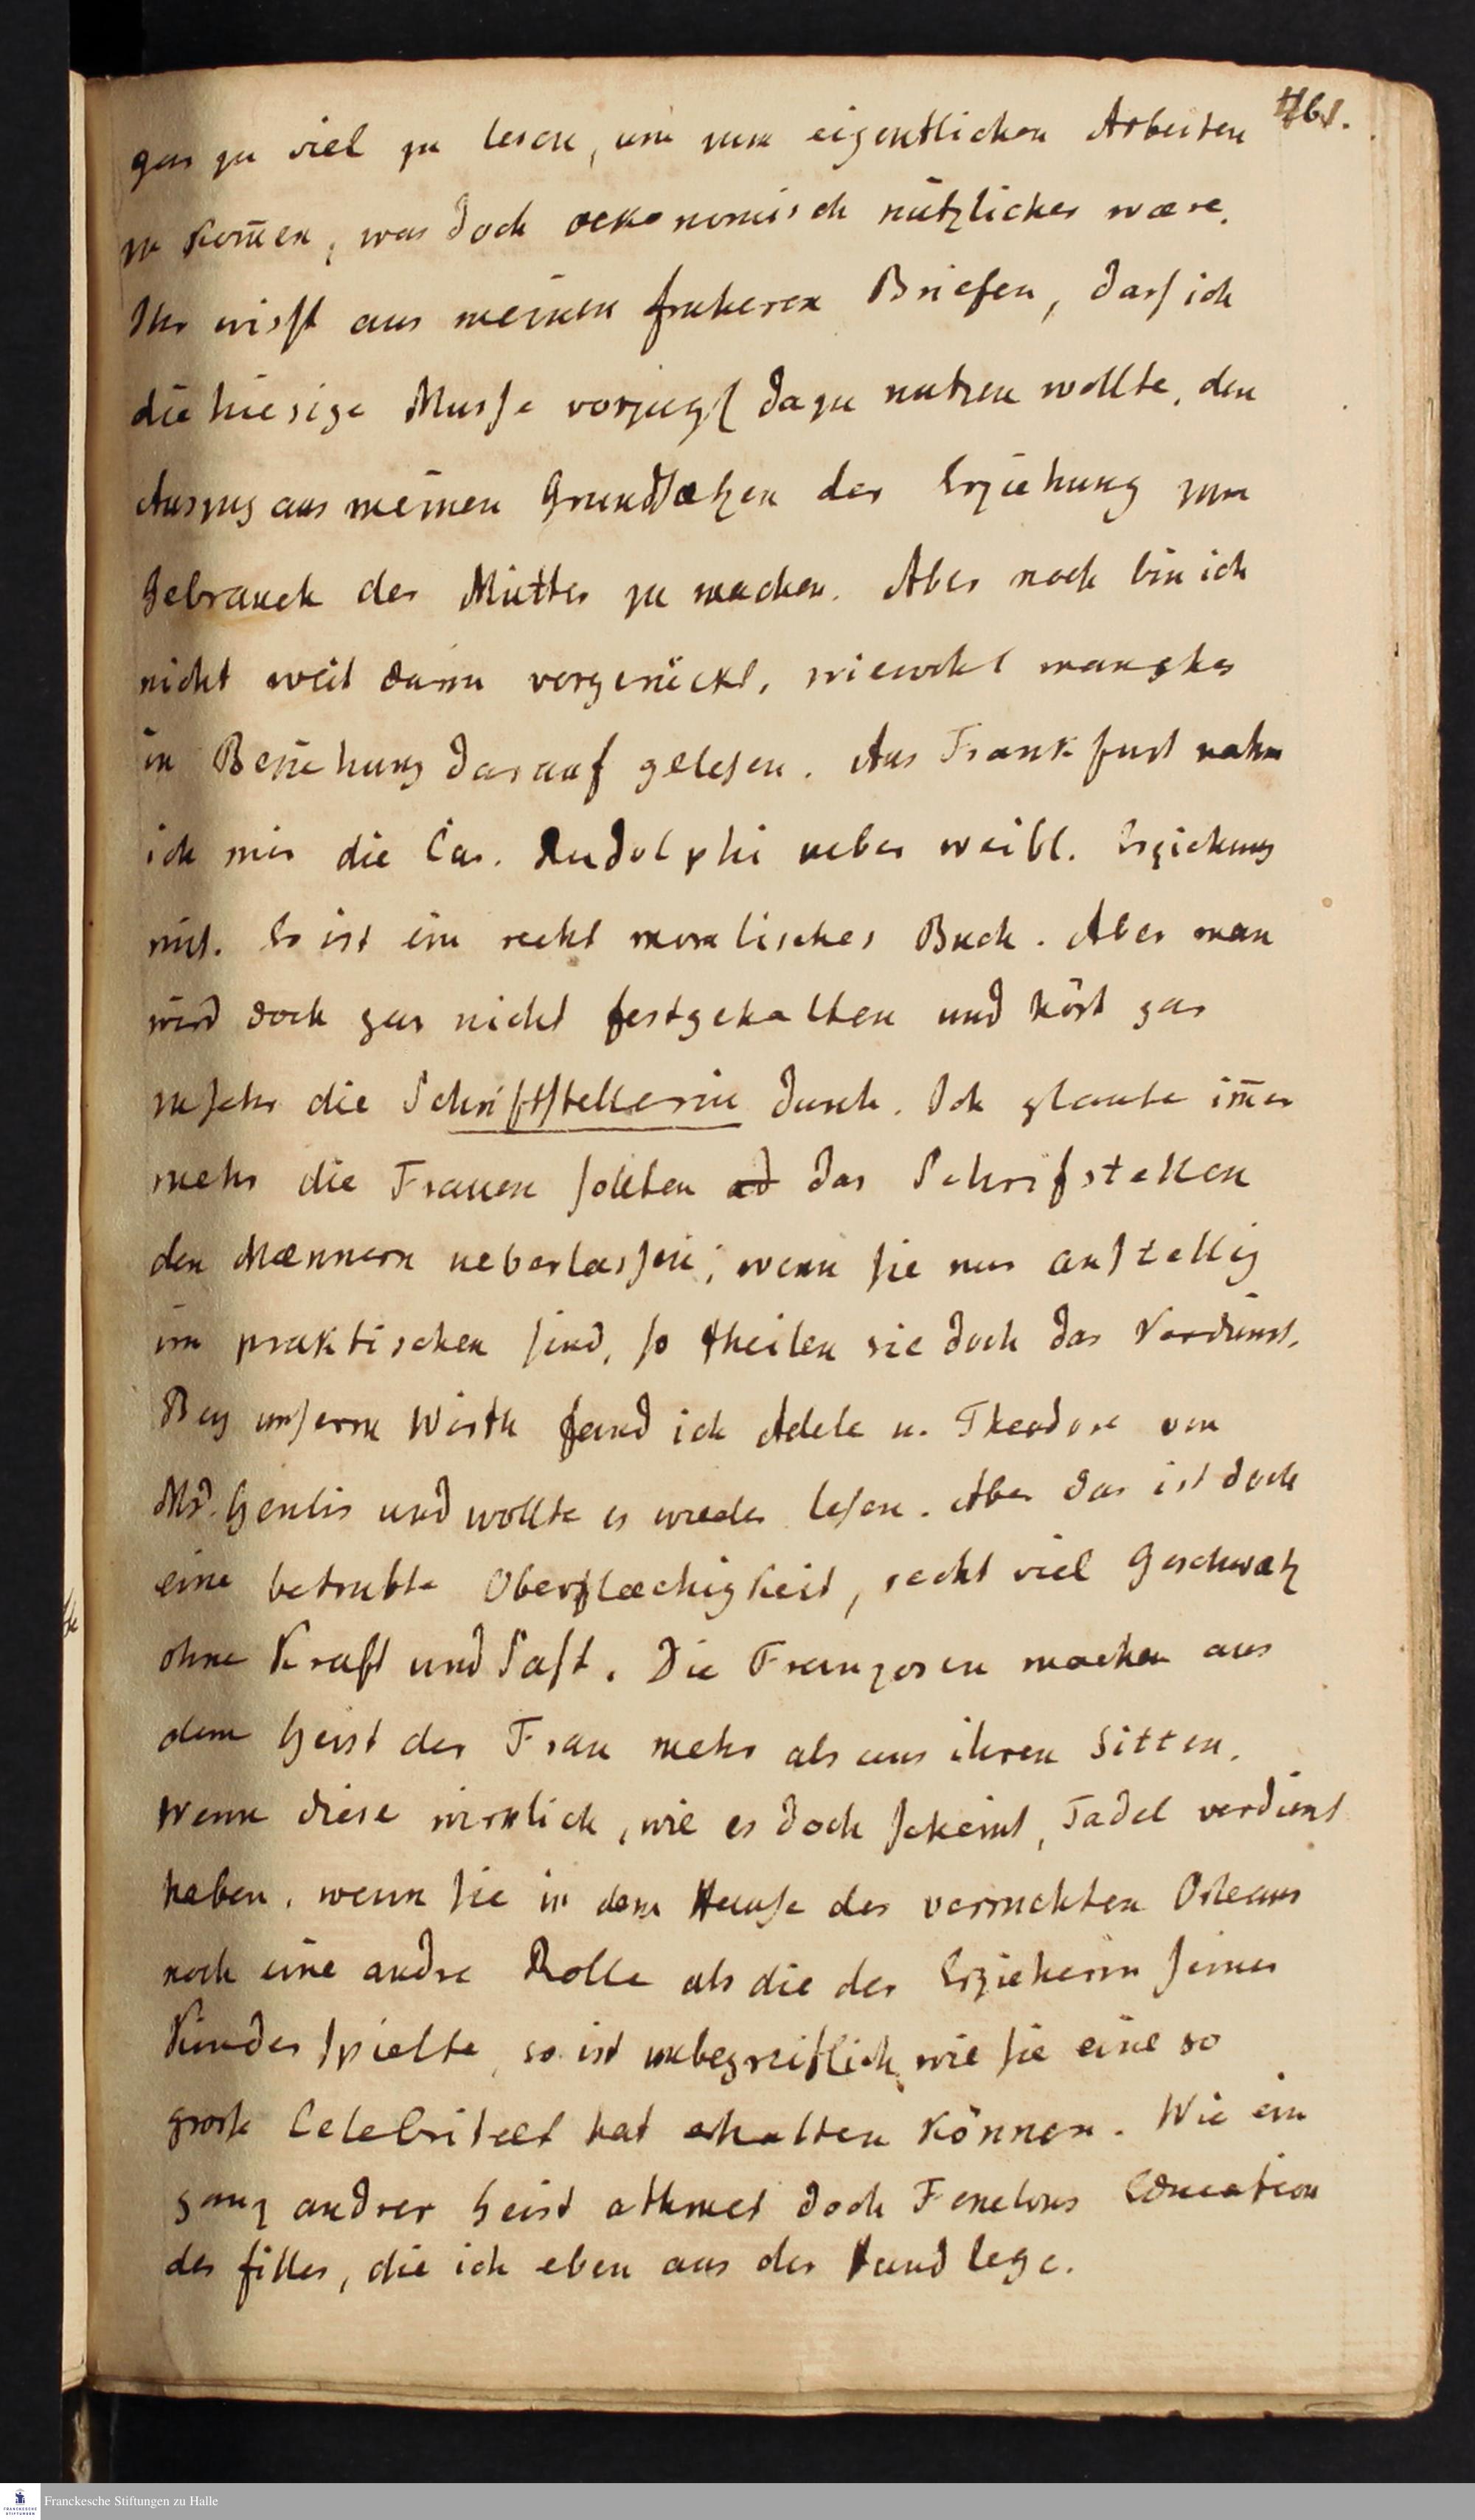 161.
gar zu viel zu lesen, um zum eigentlichen Arbeiten
zu kom̅en, was doch oekonomisch nützlicher wære.
Ihr wisst aus meinen fruheren Briefen, dass ich
die hiesige Musse vorzugl dazu nutzen wollte, den
Auszug aus meinen Grundsætzen der Erziehung zum
Gebrauch der Mütter zu machen. Aber noch bin ich
nicht weit darin vorgerückt, wiewohl manches
in Beziehung darauf gelesen. Aus Frankfurt nahm
ich mir die Car. Rudolphi ueber weibl. Erziehung
mit. Es ist ein recht moralisches Buch. Aber man
wird doch gar nicht festgehalten und hört gar
zu sehr die Schriftstellerin durch. Ich glaube im̅er
mehr die Frauen sollten ad das Schrifstellen
den Mænnern ueberlassen; wenn sie nur anstellig
im praktischen sind, so theilen sie doch das Verdienst.
Bey unserm Wirth fand ich Adele u. Theodore von
Md. Genlis und wollte es wieder lesen. Aber das ist doch
eine betrubte Oberflæchigkeit, recht viel Geschwætz
ohne Kraft und Saft. Die Franzosen machen aus
dem Geist der Frau mehr als aus ihren Sitten.
Wenn diese wirklich, wie es doch scheint, Tadel verdient
haben, wenn sie in dem Hause des verruchten Orleans
noch eine andre Rolle als die der Erzieherin seiner
Kinder spielte, so ist unbegreiflich, wie sie eine so
grosse Celebritæt hat erhalten können. Wie ein
ganz andrer Geist athmet doch Fenelons Education
des filles, die ich eben aus der Hand lege.
Franckesche Stiftungen zu Halle